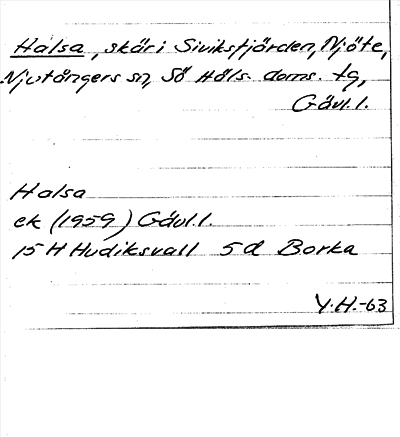 Halsa, skär i Siviksfjärden, Njöte,
Njutångers sn, Sö Häls. doms. tg,
Gävl.l.
Halsa
ek (1959) Gävl.l.
15 H Hudiksvall 5d Borka
Y.H.-63